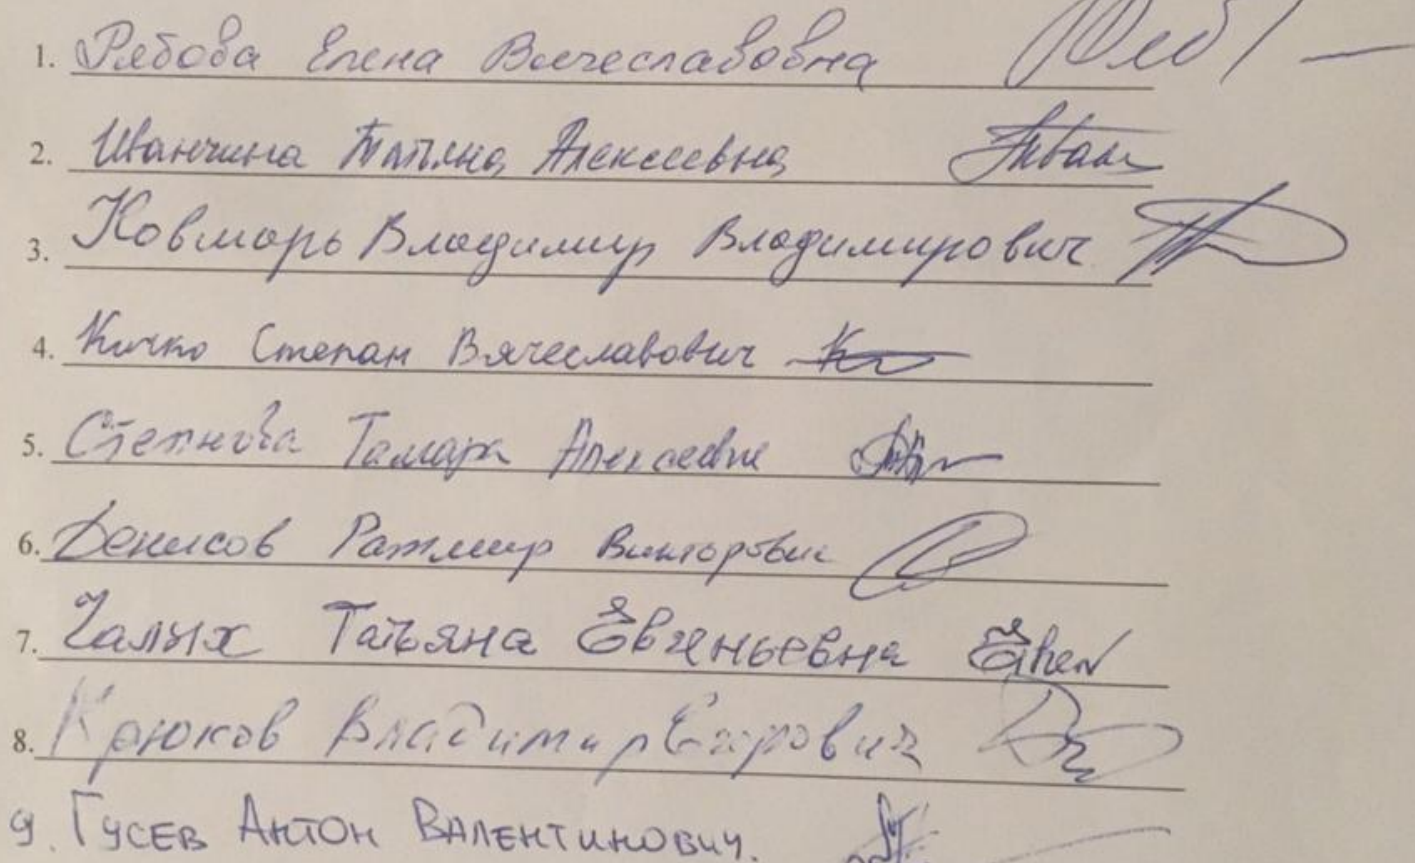 1. Рябова Елена Вячеславовна
2. Иванчина Татьяна Алексеевна
3. Ковмарь Владимир Владимирович
4. Кичко Степан Вячеславович
5. Степнова Тамара Алексеевна
6. Денисов Ратмир Викторович
7. Чалых Татьяна Евгеньевна
8. Крюков Владимир Егорович
9. Гусев Антон Валентинович.